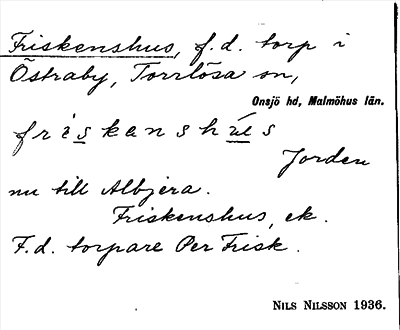 Friskenshus, f.d. torp i
Östraby, Torrlösa sn,
Onsjö hd, Malmöhus län.
friskanshúls
Jorden
nu till Albjera.
Friskenshus, ek.
F.d. torpare Per Frisk.
NILS NILSSON 1936.